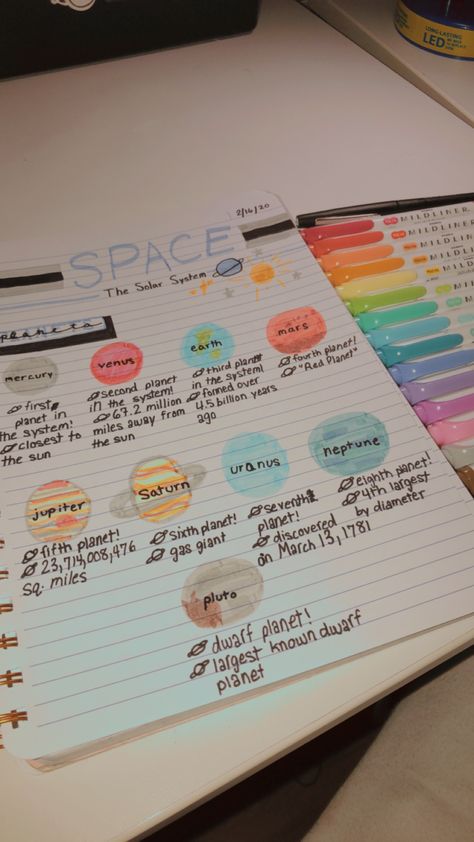 LONG-LASTING
LED
2/16/20
SPACE
The Solar System
planets
mercury
first
planet in
the system!
closest to
the sun
venus
second planet
in the system!
67.2 million
miles away from
the sun
earth
third planet
in the system!
fomed over
4.5 billion years
ago
mars
fourth planet!
"Red Planet"
jupiter
fifth planet!
23,713,008,476
sq. miles
Saturn
sixth planet!
gas giant
uranus
seventh
planet!
discovered
on March 13, 1781
neptune
eighth planet!
4th largest
by diameter
pluto
dwarf planet!
largest known dwarf
planet
MILDLINER
MILDLINER
MILDLINER
MILDLINER
MILDLINER